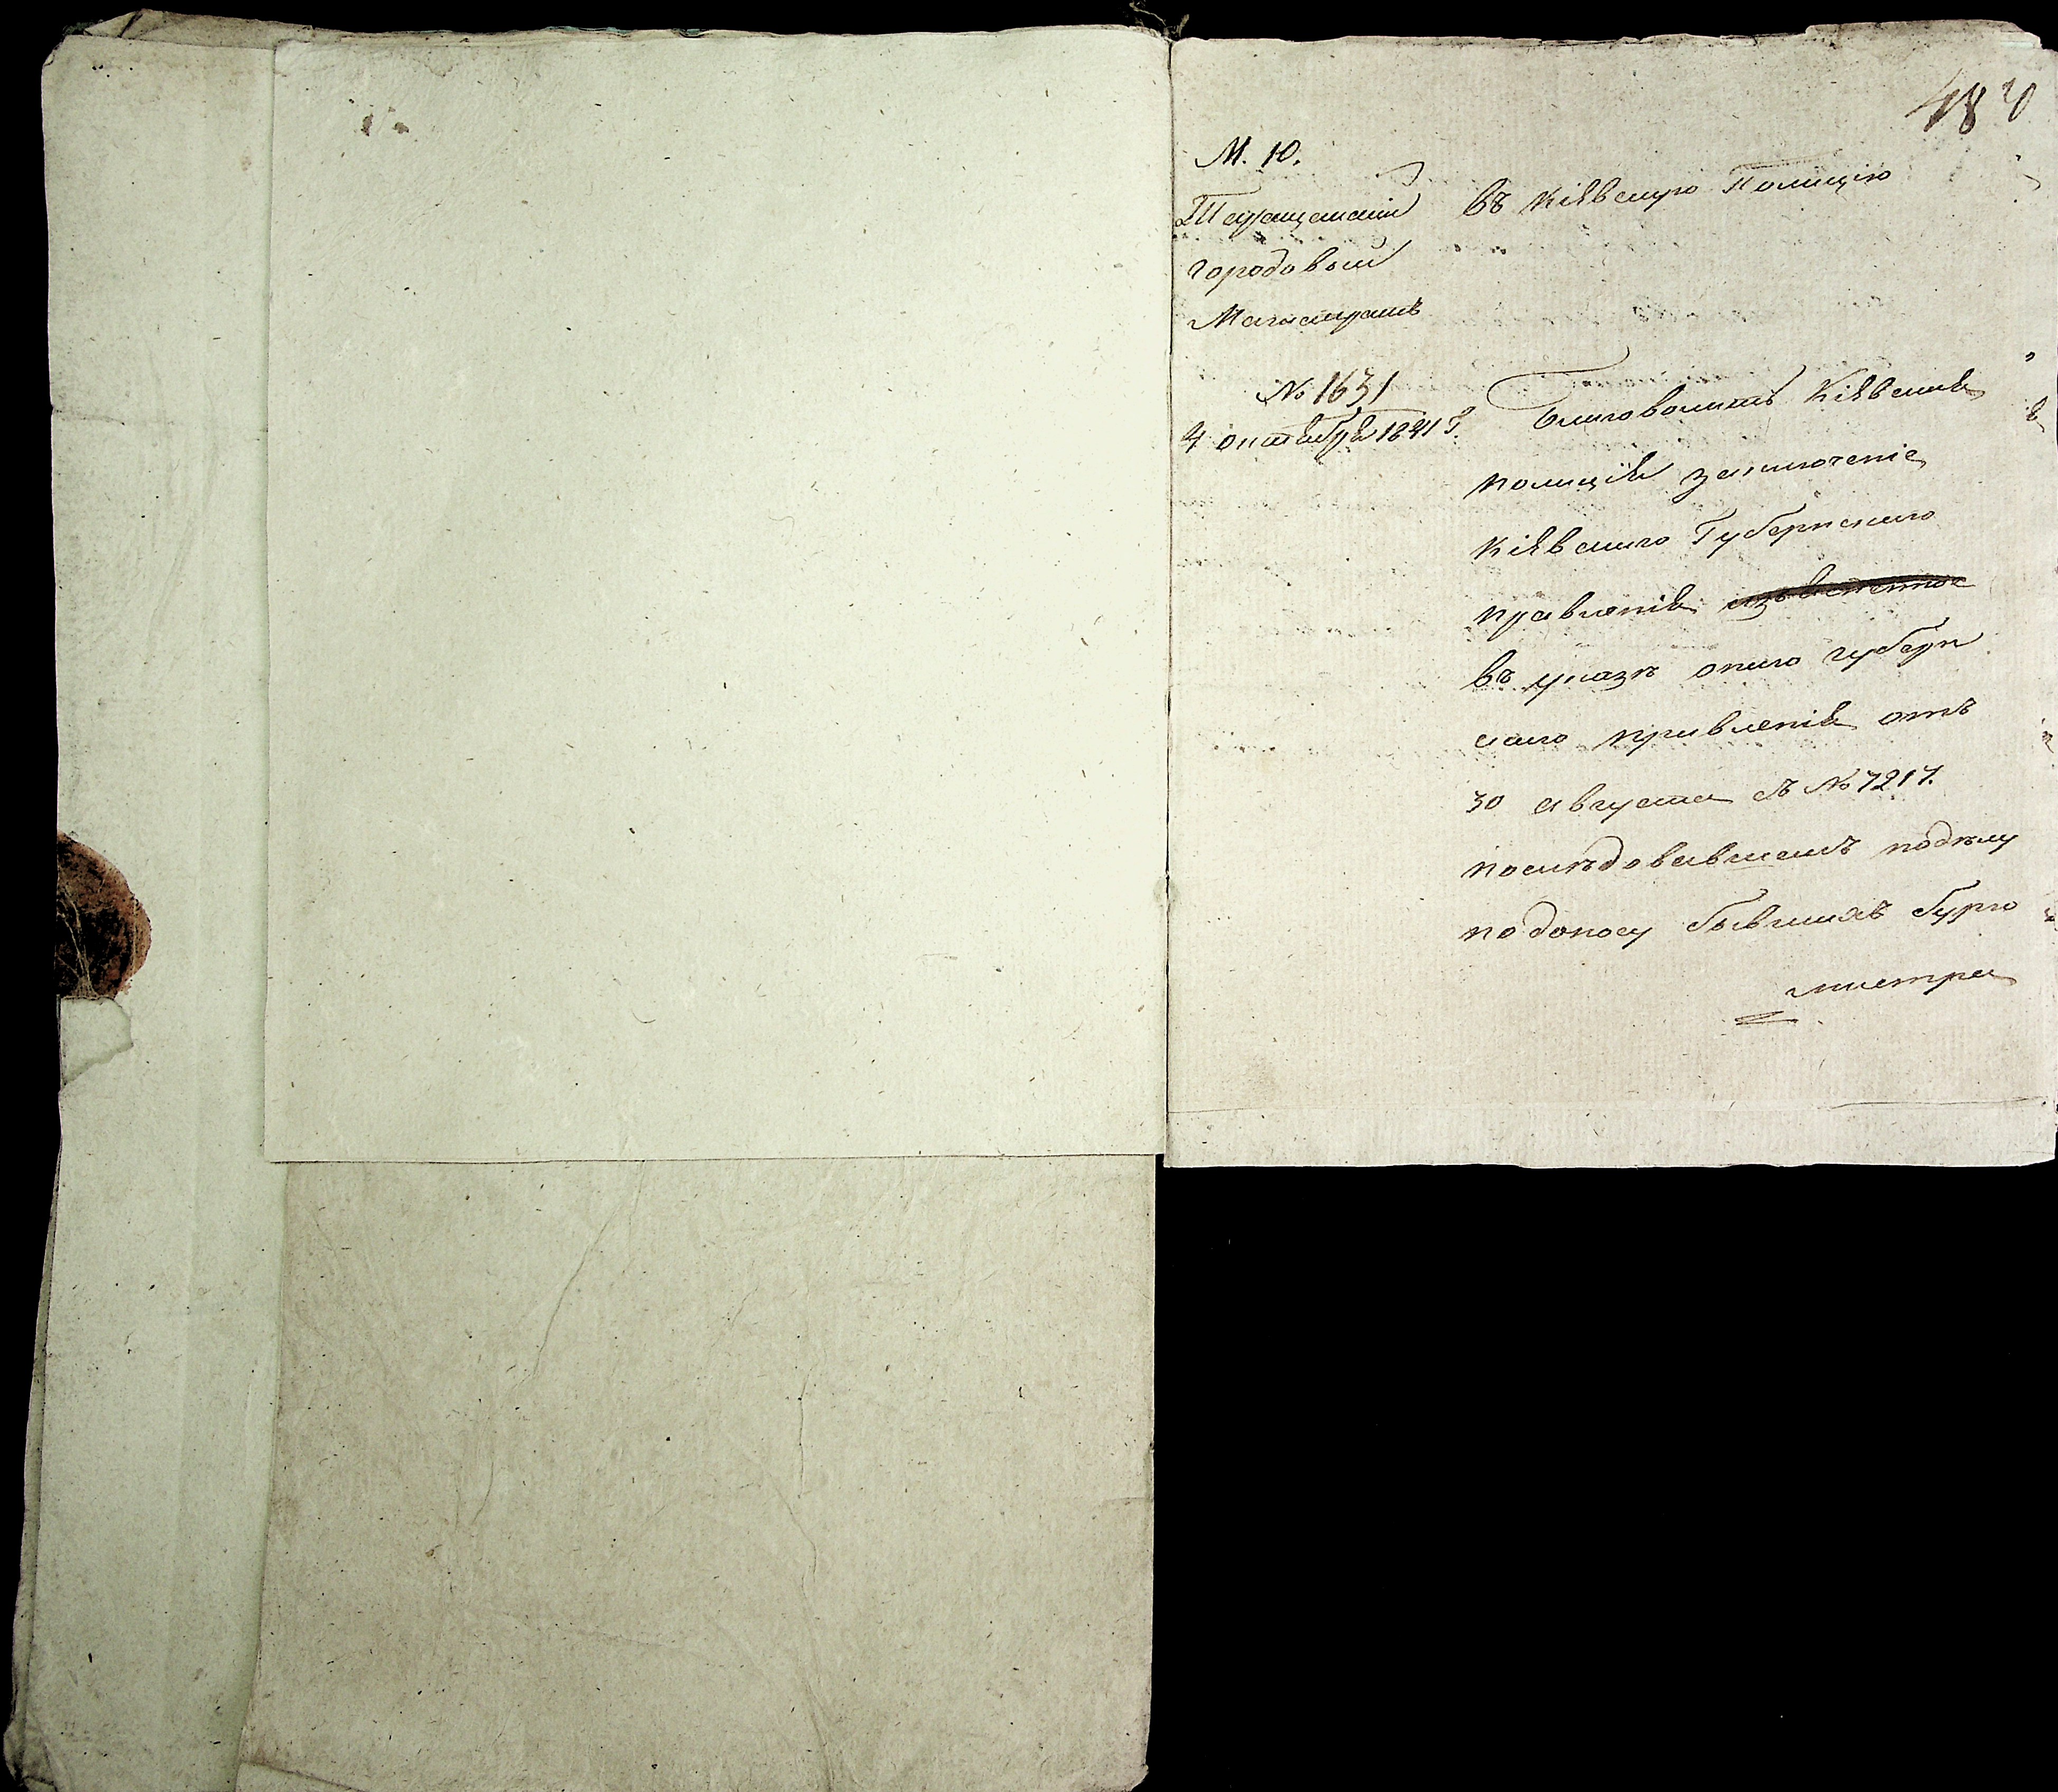 М. 10.
Таращанскій
городовый
Магистратъ
№ 1631
4 октября 1821 г.
въ Кіявскую Полицію
Благоволитъ Кіявская
полиція заключеніе
Кіявскаго Губернскаго
правленія
въ указѣ онаго губерн
скаго правленія отъ
30 августа съ № 7217.
послѣдовавшемъ подѣлу
подоносу бывшихъ бурго
мистра